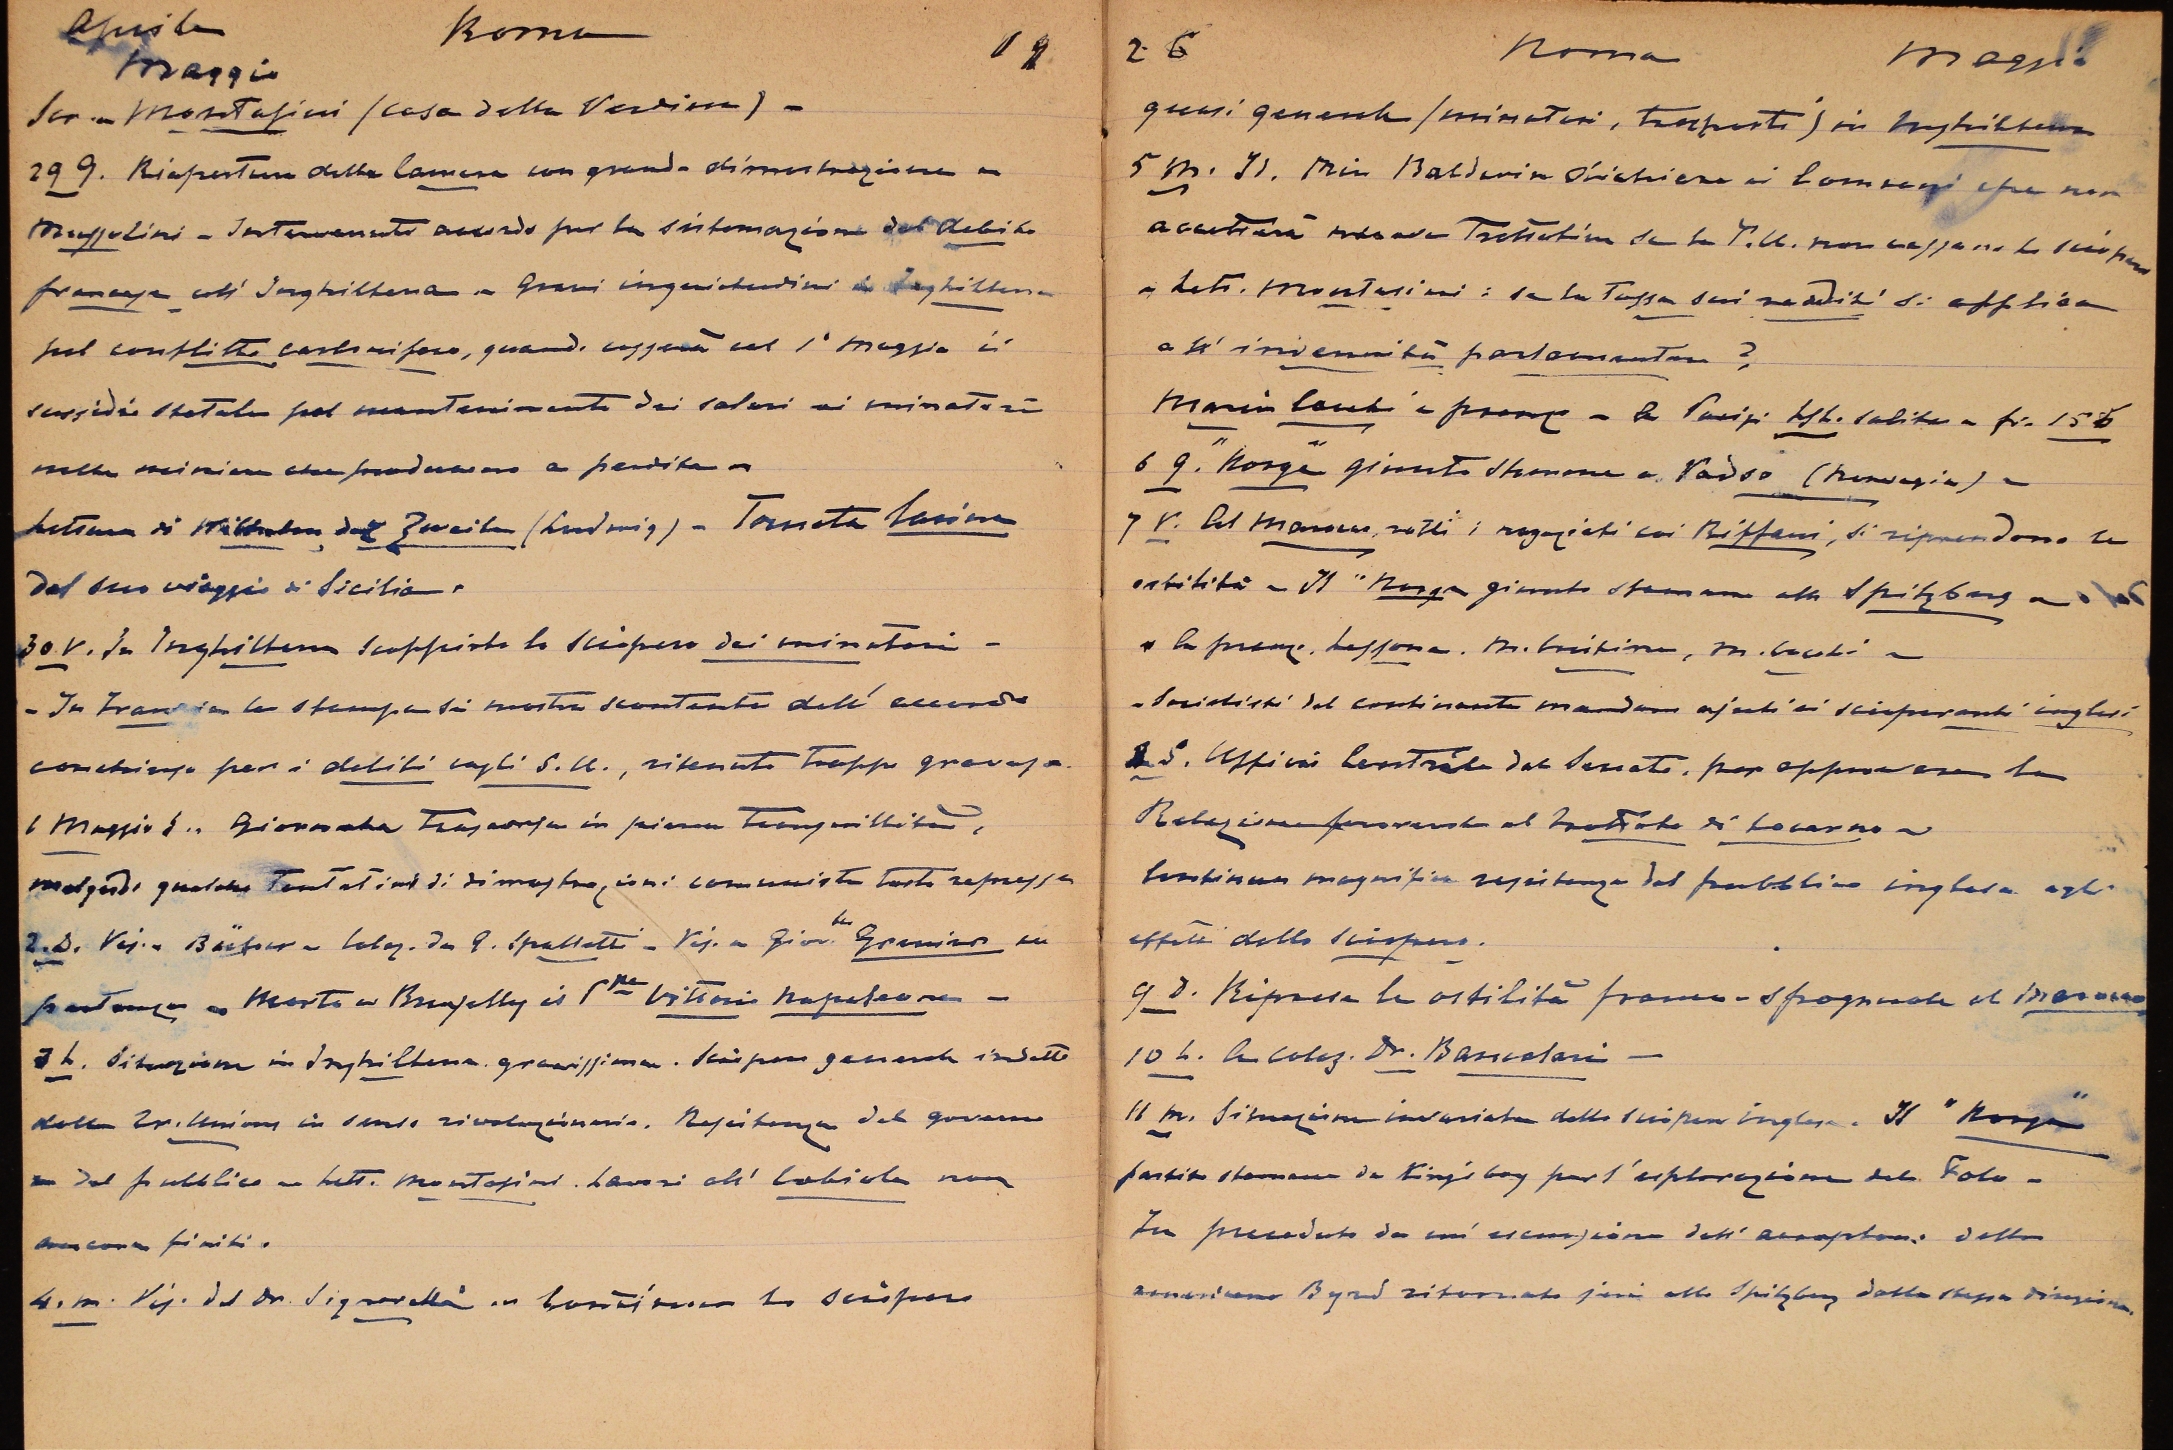 Aprile Roma 19
Maggio
Scr. a Montasini (casa della Verdina) -
29 G. Riapertura della Camera con grande dimostrazione a
Mussolini - Intervenuto accordo per la sistemazione del debito
francese coll' Inghilterra - Gravi inquietudini in Inghilterra
pel conflitto carbonifero, quando cesserà col 1° Maggio il
sussidio statale pel mantenimento dei salari ai minatori
nelle miniere che producono a perdita -
Lettura di (Ludwig) - Tornata Casina
dal suo viaggio di Sicilia.
30 V. In Inghilterra scoppiato lo sciopero dei minatori -
- In Francia la stampa si mostra scontenta dell' accordo
concluso per i debiti cogli S.U., ritenuto troppo gravoso.
1 Maggio S.. Giornata trascorsa in piena tranquillità,
malgrado qualche tentativo di dimostrazioni comuniste tosto represse
2. D. Vis. a - Colaz. da G. Spalletti - Vis. a Giov. in
partenza - Morto a Bruxelles il Ppe Vittorio Napoleone -
3 L. Situazione in Inghilterra gravissima. Sciopero generale indetto
dalle Tr. Unions in senso rivoluzionario. Resistenza del governo
e del pubblico - Lett. Montasini. Lavori all' non
ancora finiti.
4. m. Vis. del Dr. Signorelli - Continua lo sciopero
26 Roma Maggio
quasi generale (minatori, trasporti) in Inghilterra
5 M. Il Min Baldwin dichiara ai Comuni che non
accetterà nuove trattative se le T.U. non cessano lo sciopero
- Lett. Montasini: se la tassa sui redditi si applica
all' indennità parlamentare?
Maria Cocchi a pranzo - A Parigi Lst. salita a fr. 156
6 G. "Norge" giunto stamane a Vadso (Norvegia) -
7 V. Al Marocco, rotti i negoziati coi Riffani, si riprendono le
ostilità - Il "Norge giunto stamane allo Spitzberg -
a pranzo. Lessona. M. , M. Cocchi -
- Socialisti del continente mandano ajuti ai scioperanti inglesi
8 S. Ufficio Centrale del Senato, per approvare la
Relazione favorevole al trattato di Locarno -
Continua magnifica resistenza del pubblico inglese agli
effetti dello sciopero.
9 D. Ripresa le ostilità franco-spagnuole al Marocco
10 L. A colaz. Dr. Bancalari -
11 M. Situazione invariata dello sciopero inglese. Il "Norge"
partito stamane da Kingsbay per l' esplorazione del Polo -
Fu preceduto da un' escursione dell' aeroplano dello
americano Byrd ritornato jeri allo Spitzberg dalla stessa direzione.